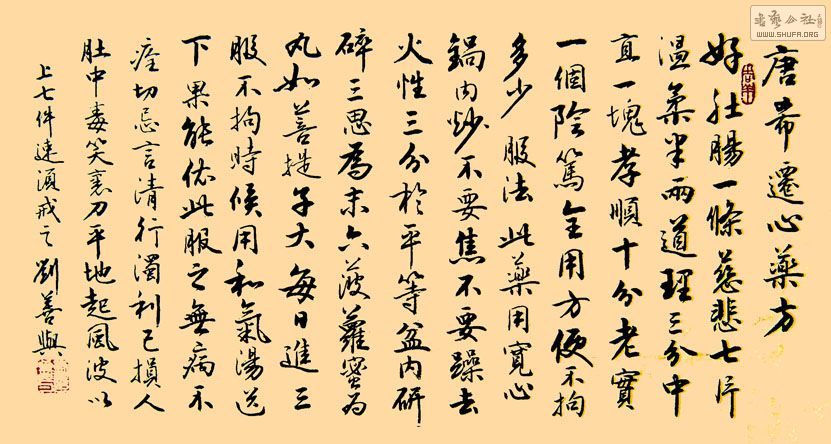 唐希遷心藥方
好肚腸一條慈悲七片
溫柔半兩道理三分中
直一塊孝順十分老實
一個陰篤全用方便不拘
多少 服法 此藥用寬心
鍋內炒不要焦不要躁去
火性三分於平等盆內研
碎三思為末六菠蘿蜜為
丸如菩提子大每日進三
服不拘時候用和氣湯送
下果能依此服之無病不
痊切忌言清行濁利己損人
肚中毒笑裏刀平地起風波以
上七件速須戒之 劉善與
書藝公社
WWW.SHUFA.ORG